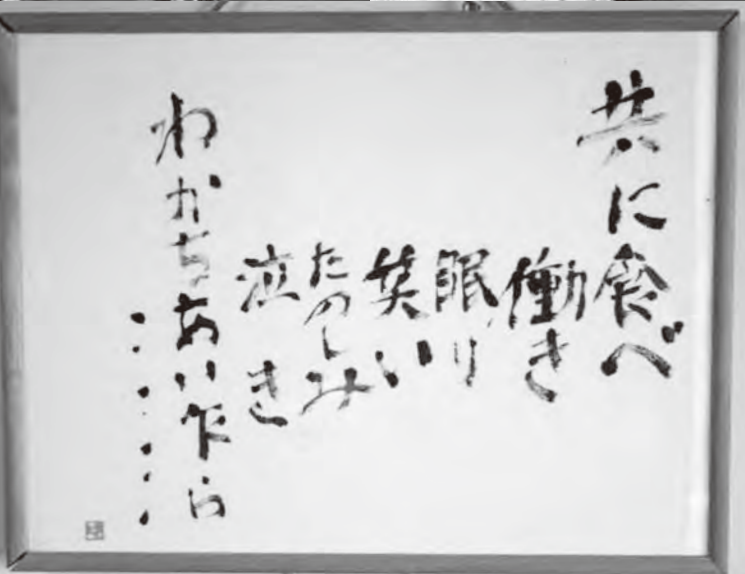 共に食べ
働き
眠り
笑い
たのしみ
泣き
わかちあい乍ら
・・・・・